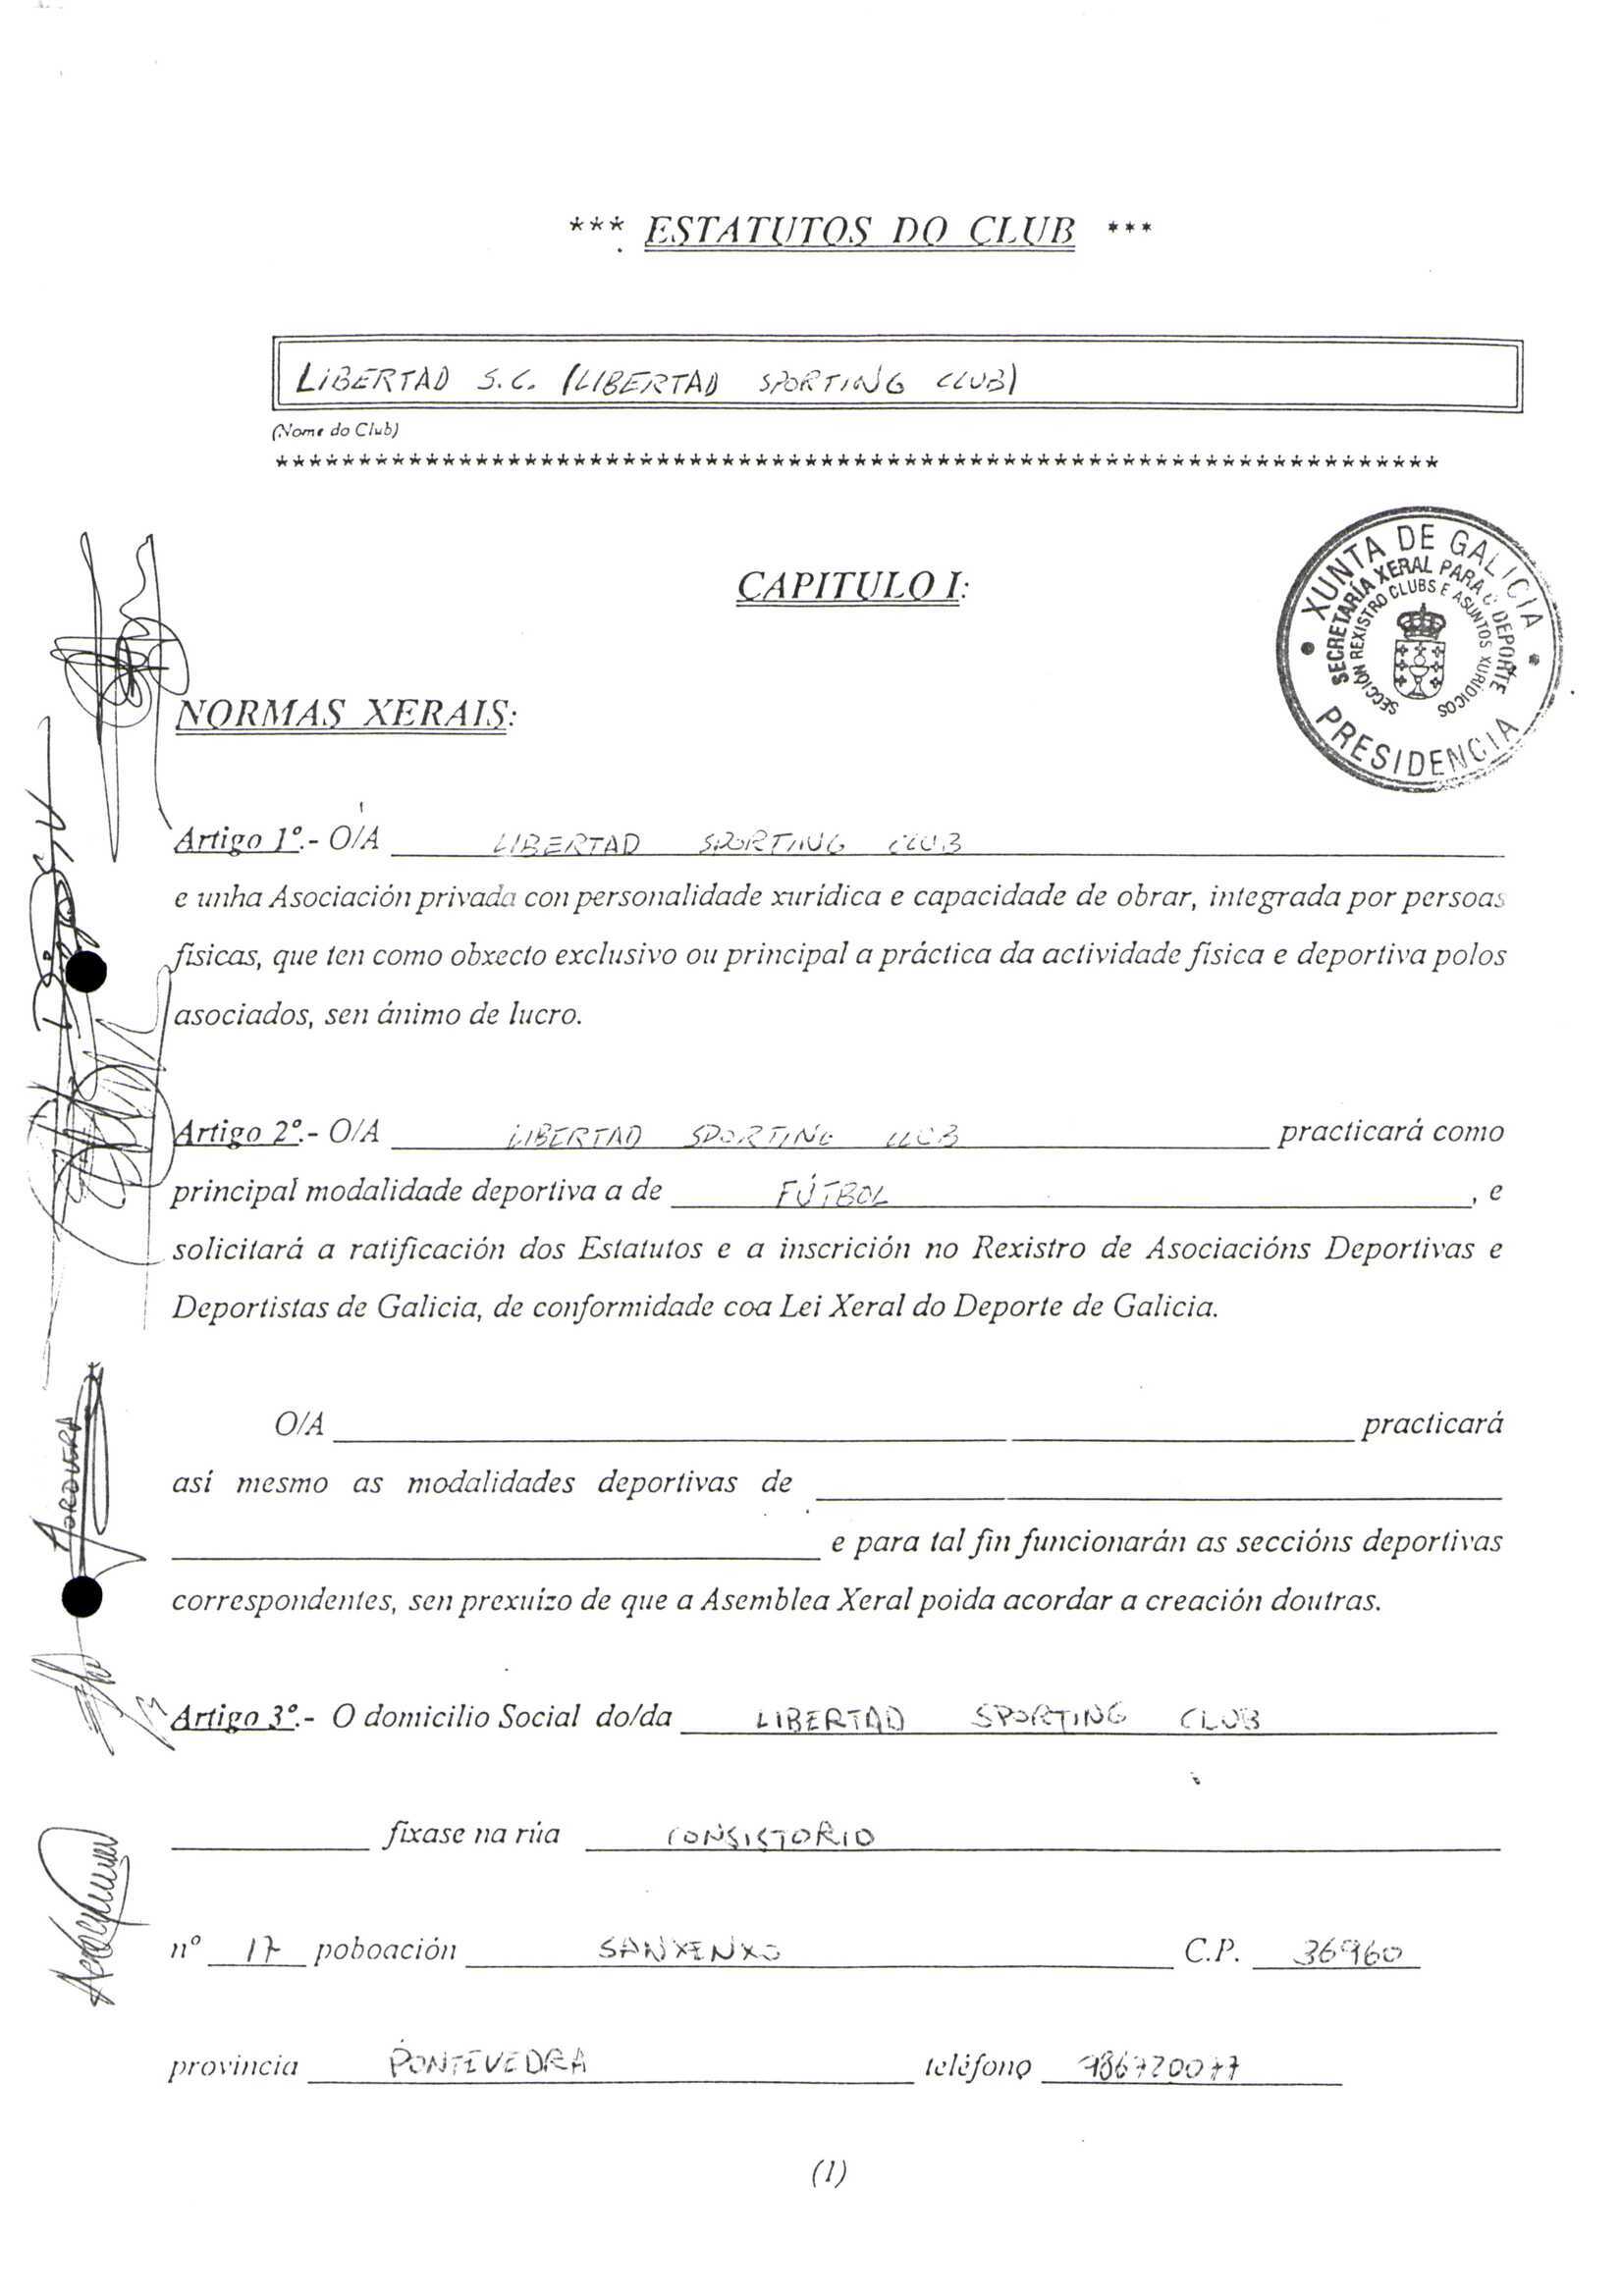 *** ESTATUTOS DO CLUB ***
LIBERTAD S.C. (LIBERTAD SPORTING CLUB)
(Nome do Club)
***********************************************************************
XUNTA DE GALICIA
SECRETARÍA XERAL PARA O DEPORTE
SECCIÓN REXISTRO CLUBS E ASUNTOS XURIDICOS
PRESIDENCIA
CAPITULO I:
NORMAS XERAIS:
Artigo 1º.- O/A LIBERTAD SPORTING CLUB
e unha Asociación privada con personalidade xurídica e capacidade de obrar, integrada por persoas
físicas, que ten como obxecto exclusivo ou principal a práctica da actividade física e deportiva polos
asociados, sen ánimo de lucro.
Artigo 2º.- O/A LIBERTAD SPORTING CLUB practicará como
principal modalidade deportiva a de FÚTBOL, e
solicitará a ratificación dos Estatutos e a inscrición no Rexistro de Asociacións Deportivas e
Deportistas de Galicia, de conformidade coa Lei Xeral do Deporte de Galicia.
O/A practicará
así mesmo as modalidades deportivas de
e para tal fin funcionarán as seccións deportivas
correspondentes, sen prexuízo de que a Asemblea Xeral poida acordar a creación doutras.
Artigo 3º.- O domicilio Social do/da LIBERTAD SPORTING CLUB
fixase na rúa CONSISTORIO
nº 17 poboación SANXENXO C.P. 36960
provincia PONTEVEDRA teléfono 986720077
(1)